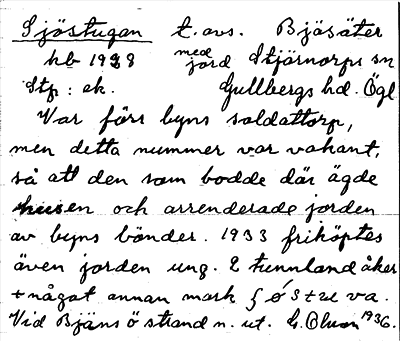 Sjöstugan t. avs. Bjäsäter
hb 1938 med jord Stjärnorps sn
Stp : ek. Gullbergs hd. Ögl
Var förr byns soldattorp,
men detta nummer var vakant,
så att den som bodde där ägde
husen och arrenderade jorden
av byns bönder. 1933 friköptes
även jorden ung. 2 tunnland åker
+ något annan mark
Vid Bjäns ö strand n. ut. G. Olson 1936.